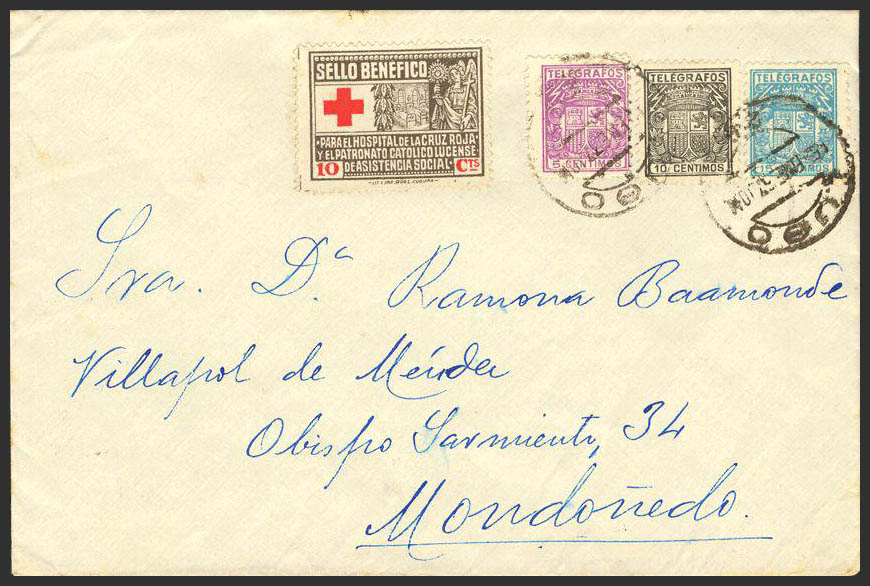 SELLO BENEFICO
PARA EL HOSPITAL DE LA CRUZ ROJA
Y EL PATRONATO CATOLICO LUCENSE
DE ASISTENCIA SOCIAL
10 Cts
TELÉGRAFOS
5 CENTIMOS
TELÉGRAFOS
10 CENTIMOS
TELÉGRAFOS
15 CENTIMOS
LUGO
Sra. Dª Ramona Baamonde
Villapol de Méndez
Obispo Sarmiento, 34
Mondoñedo.